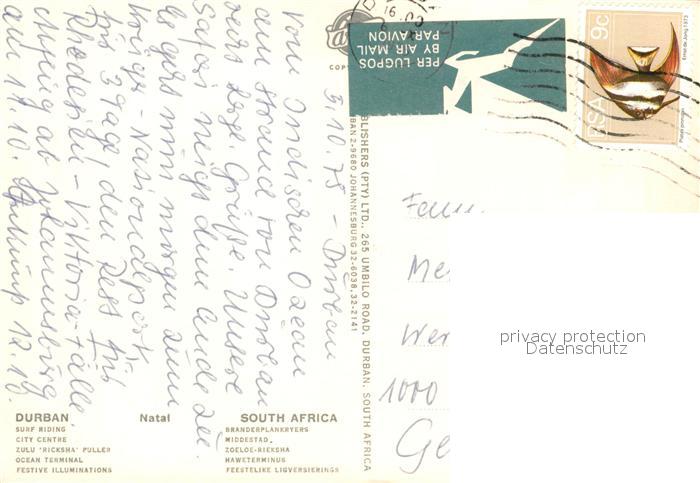 5.10.75 - Durban
Vom Indischen Ozean
und Strand von Durban
herzl. Grüße. Unsere
Safari neigt dem Ende zu.
Es geht nun morgen zum
Krüger-Nationalpark
für 3 Tage den Rest für
Rhodesien - Viktoria-Fälle.
ab Johannesburg
am 11.10. 12.10.
COPY
PER LUGPOS
BY AIR MAIL
PAR AVION
16.00
9c
RSA
Platax pinnatus
Ernst de Jong 1973
BLISHERS (PTY) LTD., 265 UMBILO ROAD, DURBAN, SOUTH AFRICA
BAN 2-9680 JOHANNESBURG 32-6038, 32-2141
Fam
Me
Wer
1000
Ge
privacy protection
Datenschutz
DURBAN Natal SOUTH AFRICA
SURF RIDING BRANDERPLANKRYERS
CITY CENTRE MIDDESTAD
ZULU 'RICKSHA' PULLER ZOELOE-RIEKSHA
OCEAN TERMINAL HAWETERMINUS
FESTIVE ILLUMINATIONS FEESTELIKE LIGVERSIERINGS